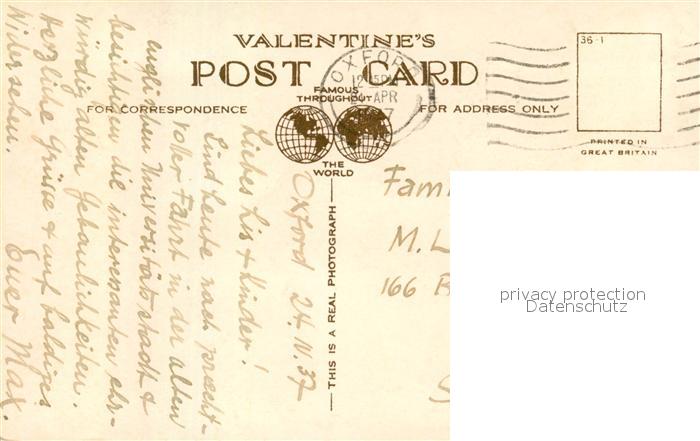 VALENTINE'S
POST CARD
FAMOUS
THROUGHOUT
THE
WORLD
FOR CORRESPONDENCE
FOR ADDRESS ONLY
OXFORD
APR
36-1
PRINTED IN
GREAT BRITAIN
THIS IS A REAL PHOTOGRAPH
Oxford 24.IV.37
Liebes Lis & Kinder!
Sind heute nach pracht-
voller Fahrt in der alten
englischen Universitätsstadt &
besich die interessanten ehr-
würdig alten Gebaulichkeiten.
Herzliche Grüsse & auf baldiges
Widersehen.
Euer Max.
Fam
M. L
166
S
privacy protection
Datenschutz